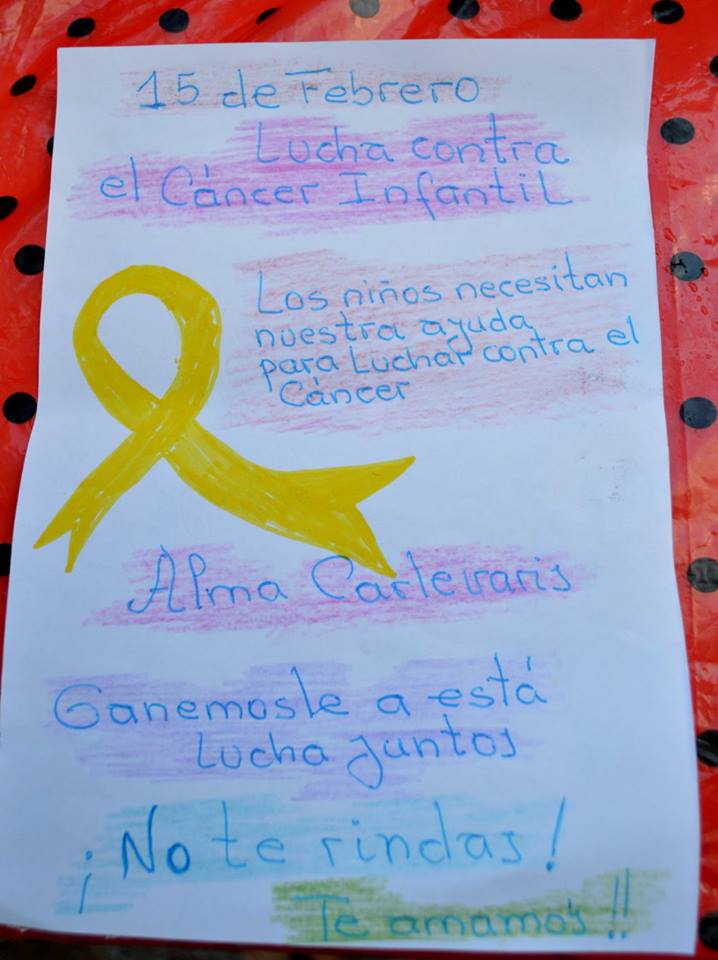 15 de Febrero
Lucha contra
el Cáncer Infantil
Los niños necesitan
nuestra ayuda
para Luchar contra el
Cáncer
Alma
Ganemosle a está
Lucha juntos
¡No te rindas!
Te amamos!!